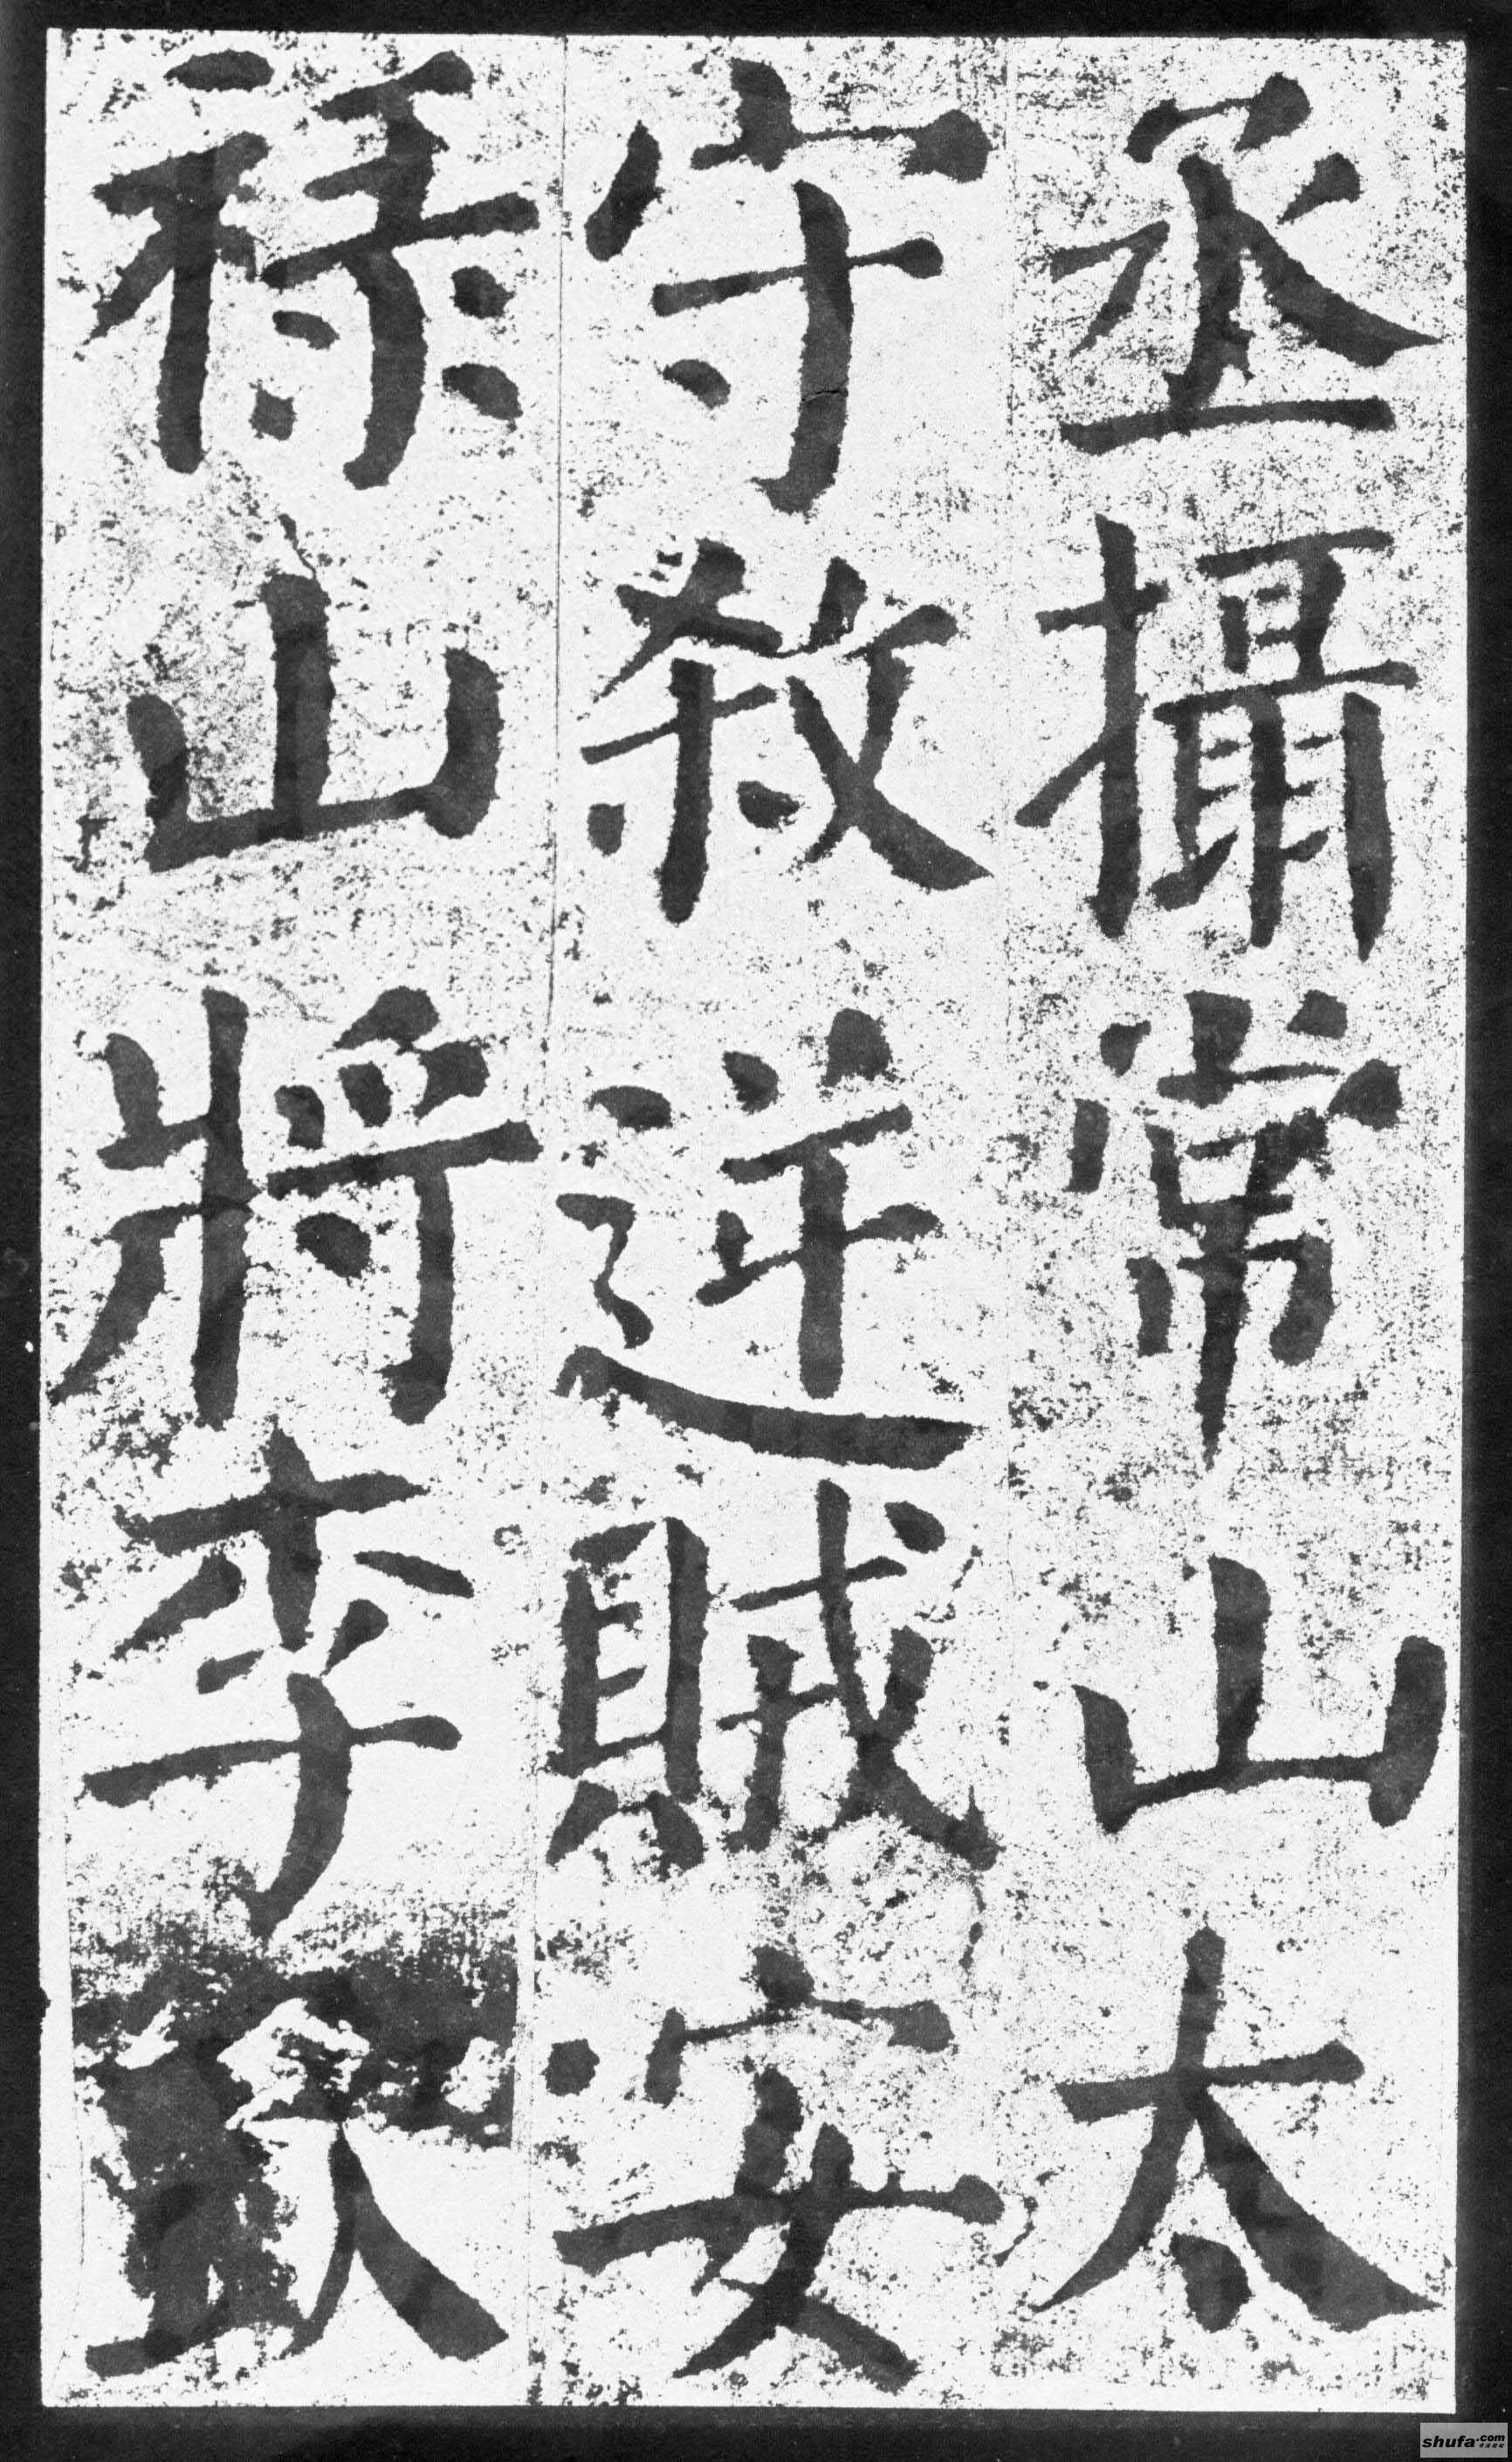 丞攝常山太
守殺逆賊安
禄山將李欽
shufa.com